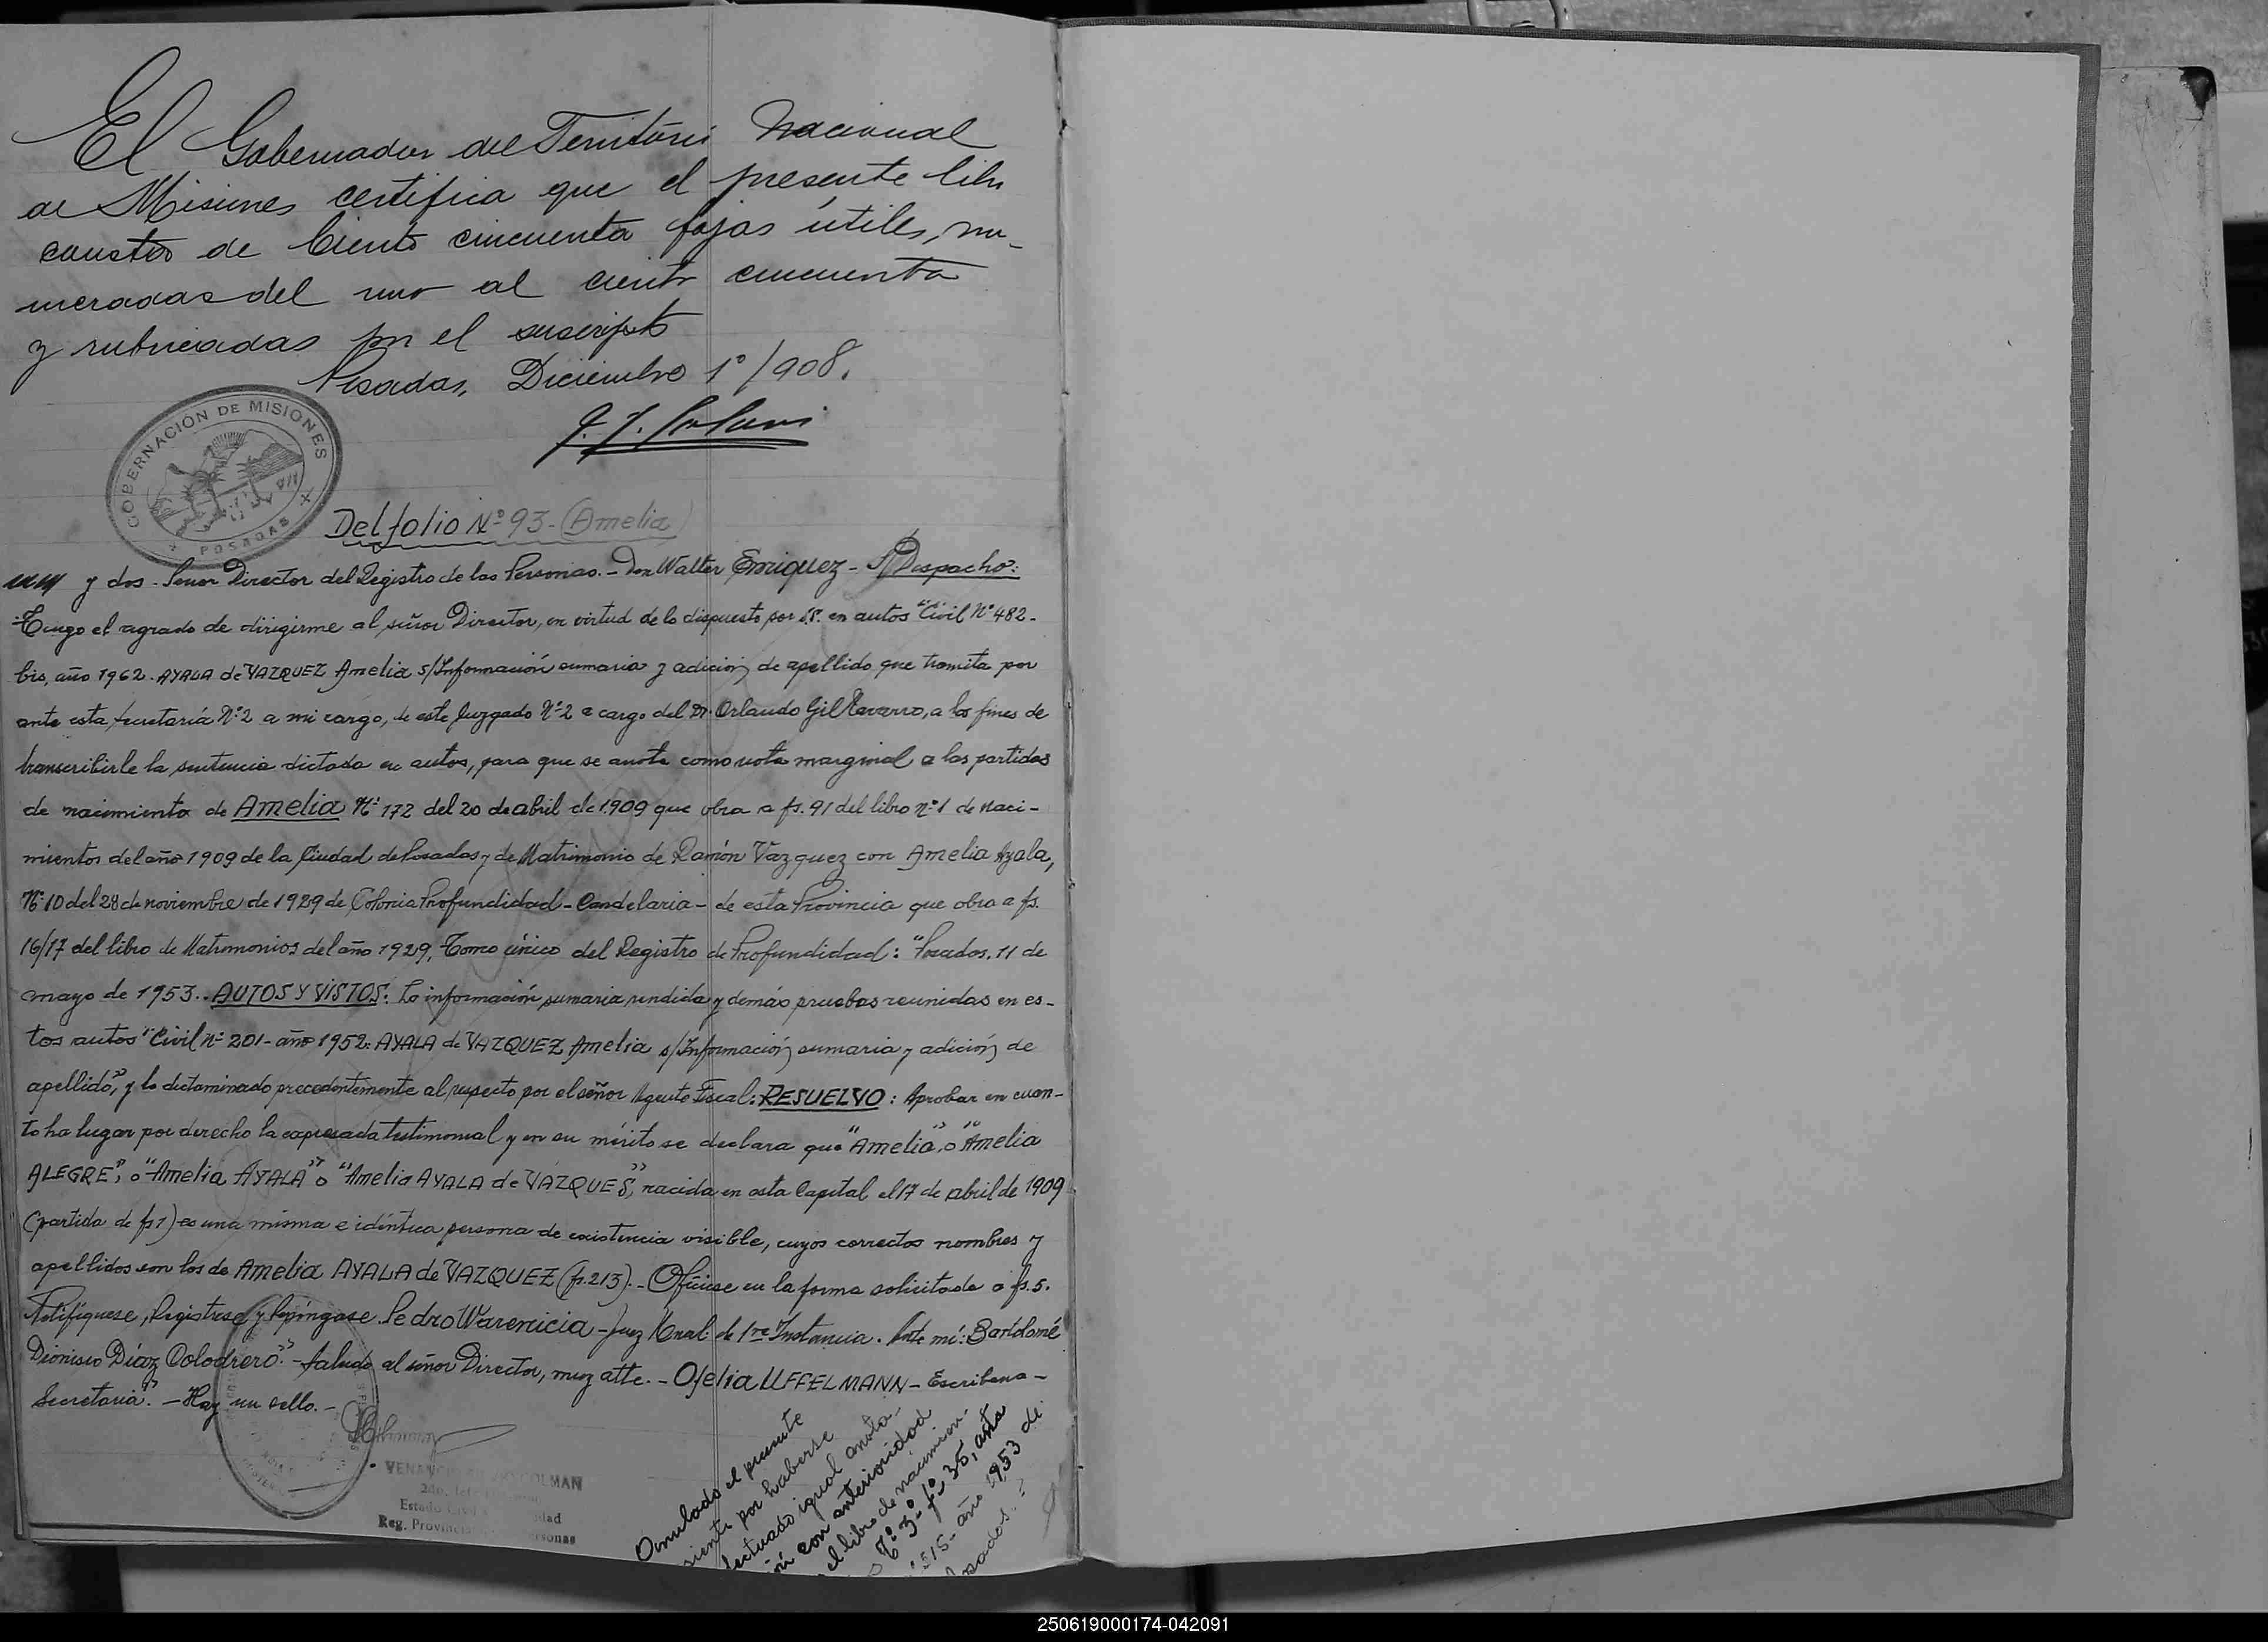 El Gobernador del Territorio Nacional
de Misiones certifica que el presente libro
consta de Ciento cincuenta fojas útiles, nu-
meradas del uno al ciento cincuenta
y rubricadas por el suscripto
Posadas, Diciembre 1º/908.
GOBERNACIÓN DE MISIONES
POSADAS
Del folio Nº 93 - (Amelia)
y dos - Señor Director del Registro de las Personas. - Don Walter Enriquez - S/Despacho:
Tengo el agrado de dirigirme al señor Director, en virtud de lo dispuesto por S.S. en autos "Civil Nº 482-
bis, año 1962. AYALA de VAZQUEZ Amelia s/Información sumaria y adición de apellido que tramita por
ante esta Secretaría Nº 2 a mi cargo, de este Juzgado Nº 2 a cargo del Dr. Orlando Gil Navarro, a los fines de
transcribirle la sentencia dictada en autos, para que se anote como nota marginal a las partidas
de nacimiento de Amelia Nº 172 del 20 de abril de 1909 que obra a fs. 91 del libro nº 1 de Naci-
mientos del año 1909 de la Ciudad de Posadas y de Matrimonio de Ramón Vazquez con Amelia Ayala,
Nº 10 del 28 de noviembre de 1929 de Colonia Profundidad - Candelaria - de esta Provincia que obra a fs.
16/17 del libro de Matrimonios del año 1929, Tomo único del Registro de Profundidad: "Posadas, 11 de
mayo de 1953.. AUTOS Y VISTOS: La información sumaria rendida y demás pruebas reunidas en es-
tos autos "Civil nº 201 - año 1952: AYALA de VAZQUEZ Amelia s/Información sumaria y adición de
apellido", y lo dictaminado precedentemente al respecto por el señor Agente Fiscal: RESUELVO: Aprobar en cuan-
to ha lugar por derecho la expresada testimonial y en su mérito se declara que "Amelia", o "Amelia
ALEGRE", o "Amelia AYALA" o "Amelia AYALA de VÁZQUES", nacida en esta Capital el 17 de abril de 1909
(partida de fs 1) es una misma e idéntica persona de existencia visible, cuyos correctos nombres y
apellidos son los de Amelia AYALA de VAZQUEZ (fs. 213). - Ofíciese en la forma solicitada a fs. 5.
Notifíquese, Regístrese y Repóngase. Pedro Warenicia - Juez Nnal. de 1ra Instancia. Ante mí: Bartolomé
Dionisio Díaz Colodrero". - Saludo al señor Director, muy atte. - Ofelia UFFELMANN - Escribana -
Secretaria". - Hay un sello. -
COLMAN
Estado Civil
Reg. Provincia
Anulado el presente
por haberse
igual anota-
con anterioridad
el libro de nacimien-
Tº 3º fº 36, acta
515 - año 1953 de
250619000174-042091